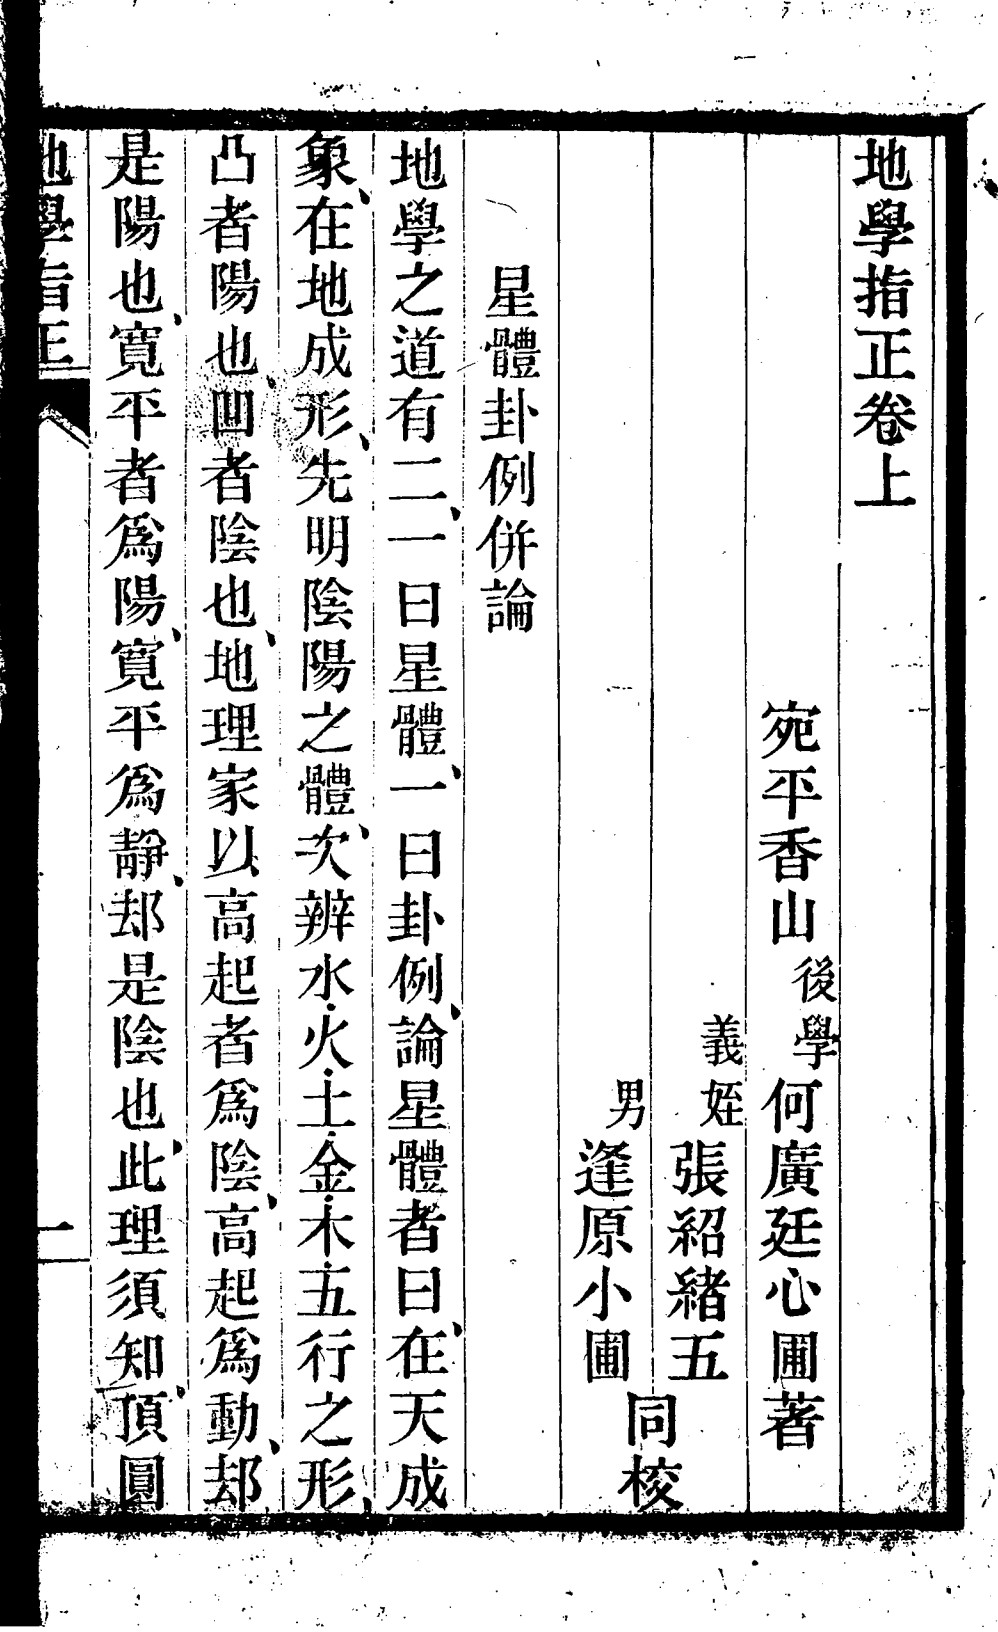 地學指正卷上
宛平香山後學何廣廷心圃著
義姪張紹緒五
男逢原小圃
同校
星體卦例併論
地學之道有二、一曰星體、一曰卦例、論星體者曰、在天成
象、在地成形、先明陰陽之體、次辨水、火、土、金、木、五行之形、
凸者陽也、凹者陰也、地理家以高起者爲陰、高起爲動、却
是陽也、寬平者爲陽、寬平爲靜、却是陰也、此理須知、頂圓
地學指正
二